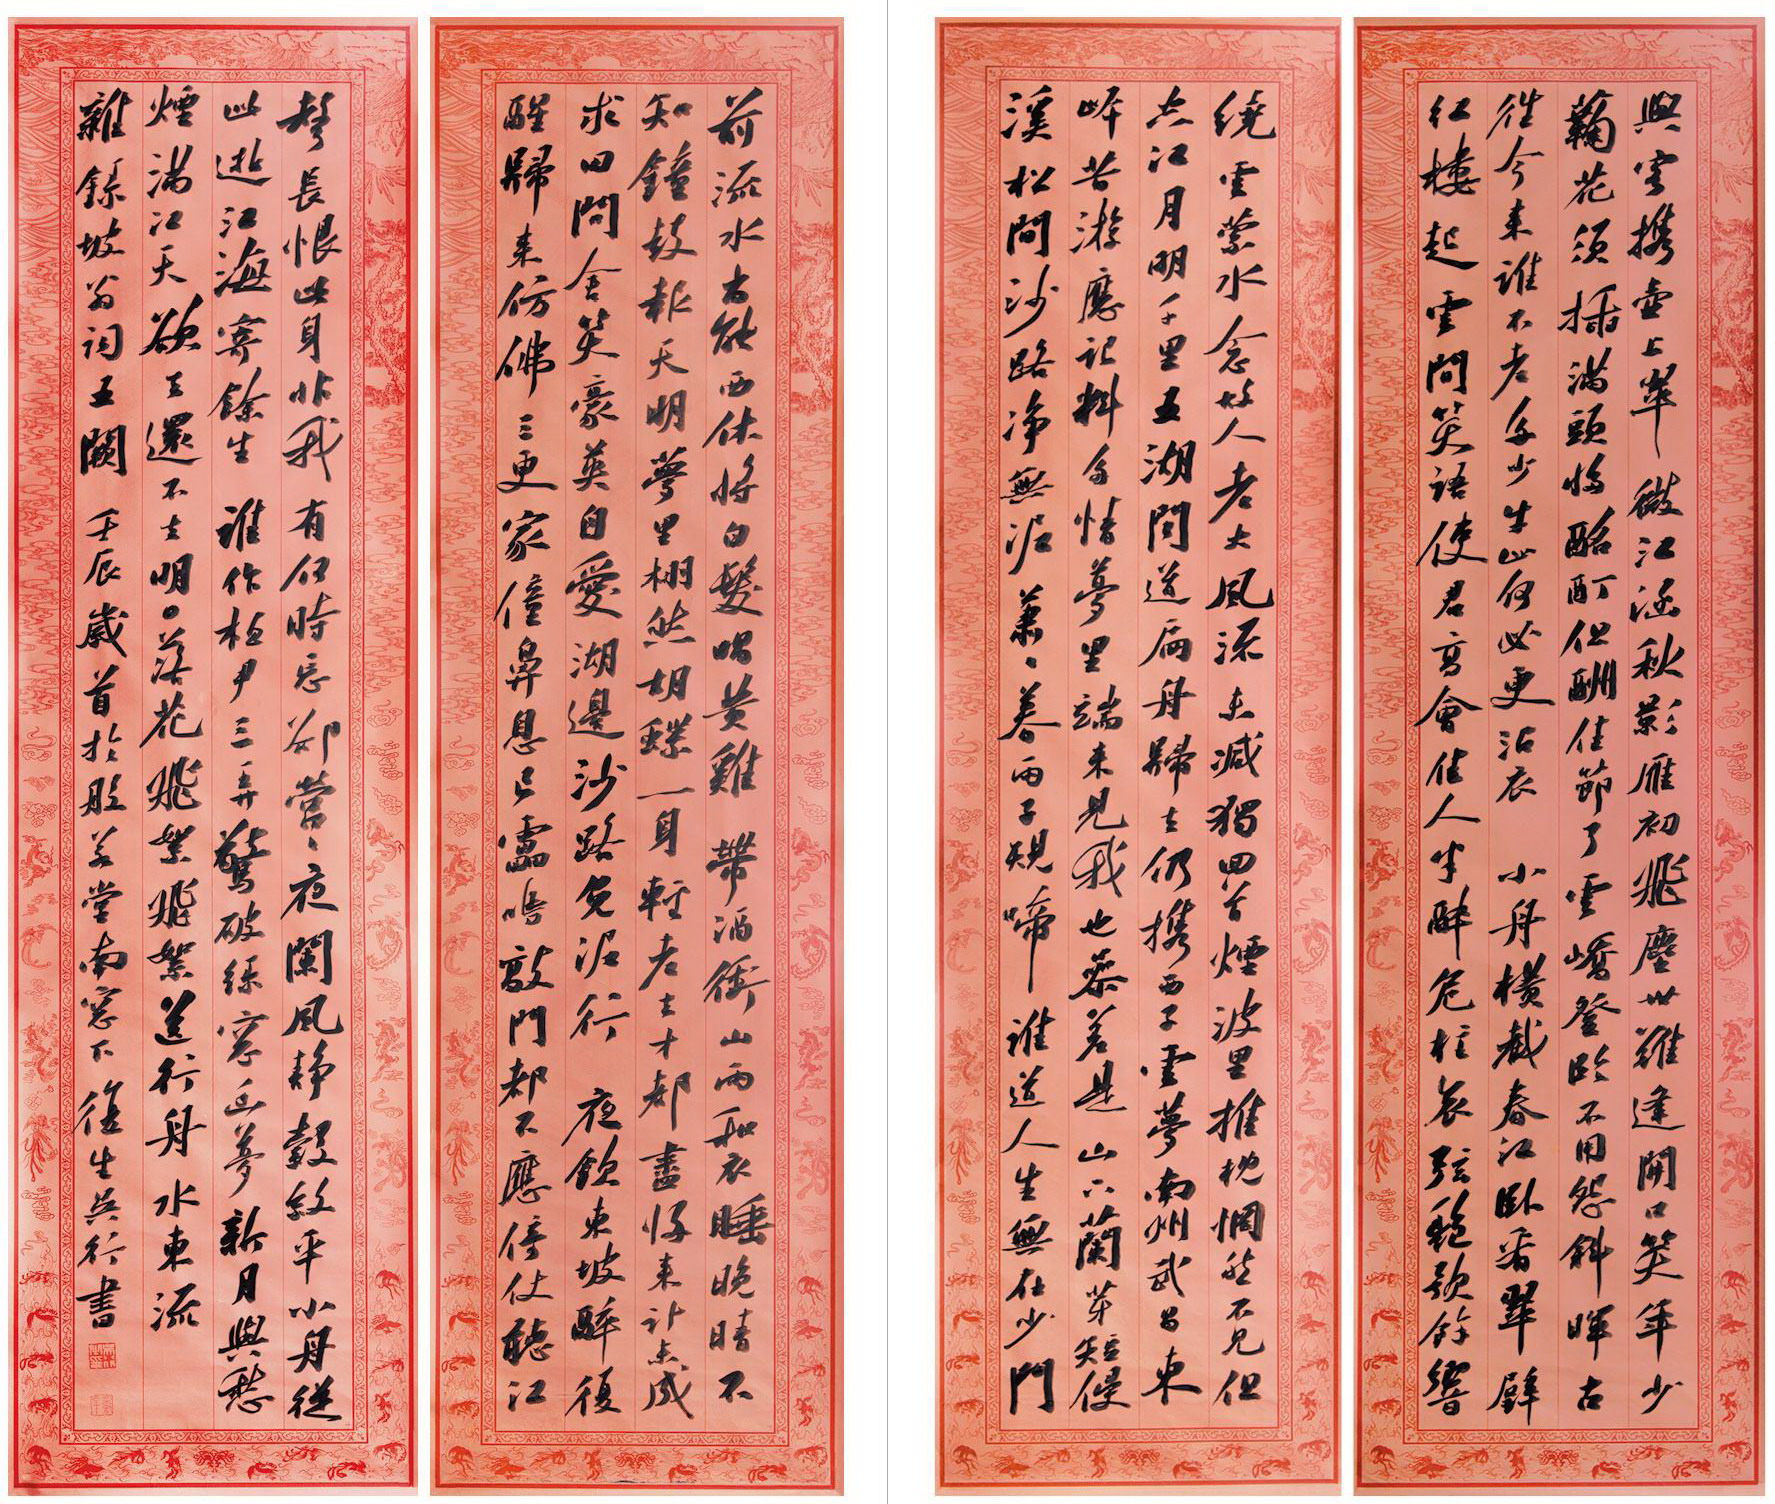 與客攜壺上翠微江涵秋影雁初飛塵世難逢開口笑年少
菊花須插滿頭歸酩酊但酬佳節了雲嶠登臨不用怨斜暉古
往今來誰不老多少牛山何必更沾衣 小舟橫截春江臥看翠壁
紅樓起雲間笑語使君高會佳人半醉危柱哀弦絕歌餘響
繞雲縈水念故人老大風流未減獨回首煙波里推枕惘然不見但
空江月明千里五湖聞道扁舟歸去仍攜西子雲夢南州武昌東
岸昔游應記料多情夢里端來見我也參差是 山下蘭芽短浸
溪松間沙路淨無泥蕭〻暮雨子規啼誰道人生無在少門
前流水尚能西休將白髮唱黃雞 帶酒衝山雨和衣睡晚晴不
知鐘鼓報天明夢里栩然胡蝶一身輕老去才都盡歸來計未成
求田問舍笑豪英自愛湖邊沙路免泥行 夜飲東坡醉復
醒歸來仿佛三更家僮鼻息已雷鳴敲門都不應倚仗聽江
聲長恨此身非我有何時忘卻營〻夜闌風靜縠紋平小舟從
此逝江海寄餘生 誰作桓尹三弄驚破綠窗幽夢新月與愁
煙滿江天欲去還不去明日落花飛絮飛絮送行舟水東流
雜錄坡翁詞五闕 壬辰歲首於般若堂南窗下 後生吳行書